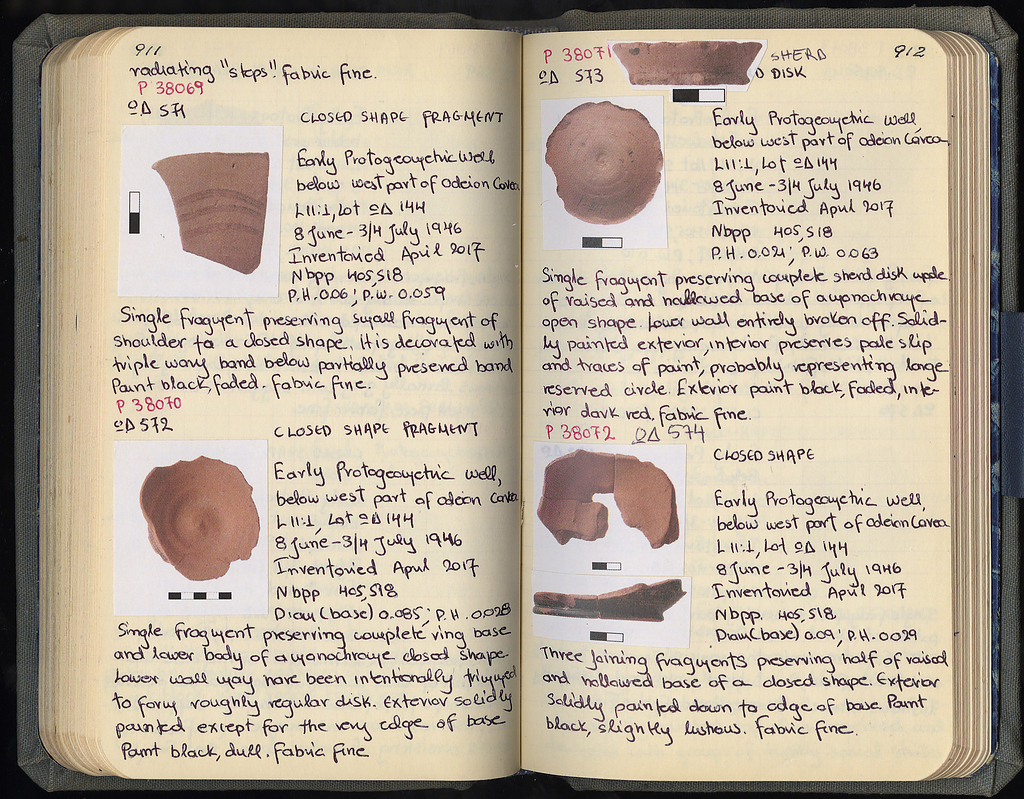 911
radiating "steps". Fabric fine.
P 38069
ΟΔ 571
CLOSED SHAPE FRAGMENT
Early Protogeometric well,
below west part of Odeion Cavea
L 11:1, Lot ΟΔ 144
8 June - 3/4 July 1946
Inventoried April 2017
Nbpp 405, S18
P.H. 0.06; P.W. 0.059
Single fragment preserving small fragment of
shoulder to a closed shape. It is decorated with
triple wavy band below partially preserved band
Paint black, faded. Fabric fine.
P 38070
ΟΔ 572
CLOSED SHAPE FRAGMENT
Early Protogeometric well,
below west part of odeion Cavea
L 11:1, Lot ΟΔ 144
8 June - 3/4 July 1946
Inventoried April 2017
Nbpp 405, S18
Diam (base) 0.085; P.H. 0.028
Single fragment preserving complete ring base
and lower body of a monochrome closed shape.
Lower wall may have been intentionally trimmed
to form roughly regular disk. Exterior solidly
painted except for the very edge of base
Paint black, dull. Fabric fine
912
P 38071 SHERD
ΟΔ 573 DISK
Early Protogeometric well
below west part of odeion Cavea.
L 11:1, Lot ΟΔ 144
8 June - 3/4 July 1946
Inventoried April 2017
Nbpp 405, S18
P.H. 0.021; P.W. 0.063
Single fragment preserving complete sherd disk made
of raised and hollowed base of a monochrome
open shape. Lower wall entirely broken off. Solid-
ly painted exterior, interior preserves pale slip
and traces of paint, probably representing large
reserved circle. Exterior paint black, faded, inte-
rior dark red, fabric fine.
P 38072 ΟΔ 574
CLOSED SHAPE
Early Protogeometric well,
below west part of odeion Cavea
L 11:1, Lot ΟΔ 144
8 June - 3/4 July 1946
Inventoried April 2017
Nbpp. 405, S18
Diam (base) 0.09; P.H. 0.029
Three joining fragments preserving half of raised
and hollowed base of a closed shape. Exterior
Solidly painted down to edge of base. Paint
black, slightly lustrous. Fabric fine.